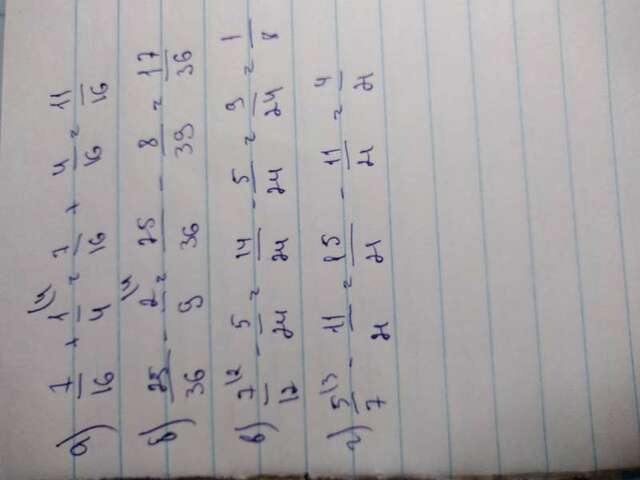 а) 7/16 + 1(4/4 = 7/16 + 4/16 = 11/16
б) 25/36 - 2(4/9 = 25/36 - 8/39 = 17/36
в) 7(2/12 - 5/24 = 14/24 - 5/24 = 9/24 = 1/8
г) 5(3/7 - 11/21 = 15/21 - 11/21 = 4/21